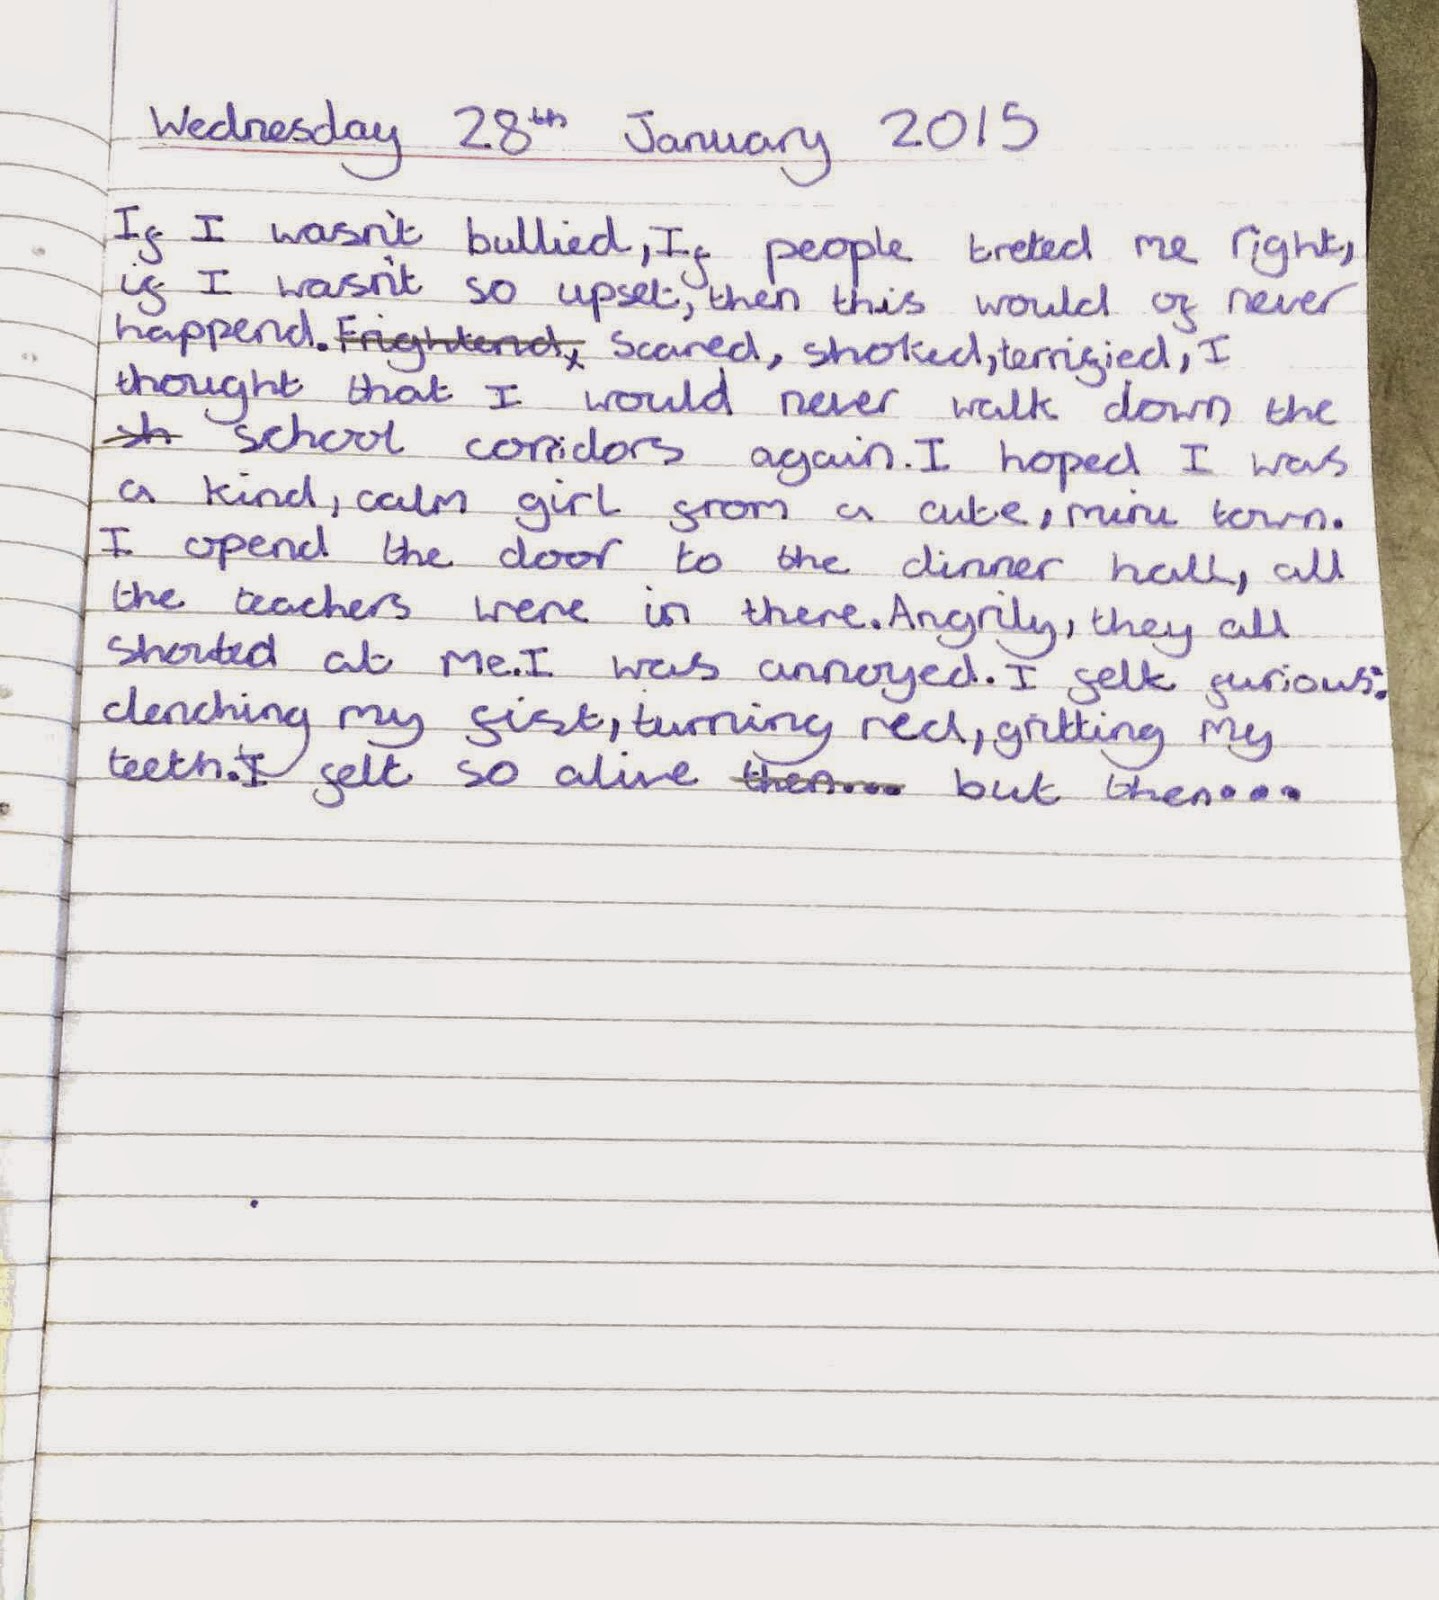 Wednesday 28th January 2015
If I wasn't bullied, If people treted me right,
if I wasn't so upset, then this would of never
happend. Frightend, Scared, shoked, terrified, I
thought that I would never walk down the
sh school corridors again. I hoped I was
a kind, calm girl from a cute, mini town.
I opend the door to the dinner hall, all
the teachers were in there. Angrily, they all
shouted at me. I was annoyed. I felt furious:
clenching my fist, turning red, gritting my
teeth. I felt so alive then... but then...